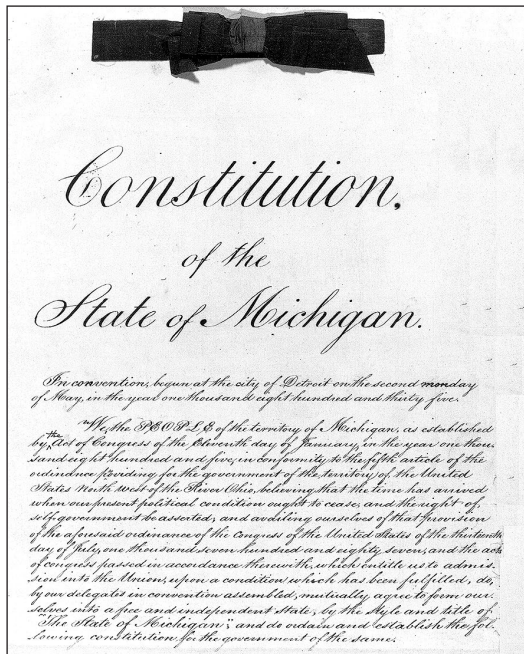 Constitution,
of the
State of Michigan.
In convention, begun at the city of Detroit on the second monday
of May, in the year one thousand eight hundred and thirty five.
"We, the PEOPLE of the territory of Michigan, as established
by the Act of Congress of the Eleventh day of January, in the year one thou-
sand eight hundred and five, in conformity to the fifth article of the
ordinance providing for the government of the territory of the United
States North West of the River Ohio, believing that the time has arrived
when our present political condition ought to cease, and the right of
self-government be asserted; and availing ourselves of that provision
of the aforesaid ordinance of the Congress of the United States of the thirteenth
day of July, one thousand seven hundred and eighty seven, and the acts
of congress passed in accordance therewith, which entitle us to admis-
sion into the Union, upon a condition which has been fulfilled, do,
by our delegates in convention assembled, mutually agree to form our-
selves into a free and independent State, by the style and title of
"The State of Michigan"; and do ordain and establish the fol-
lowing constitution for the government of the same.